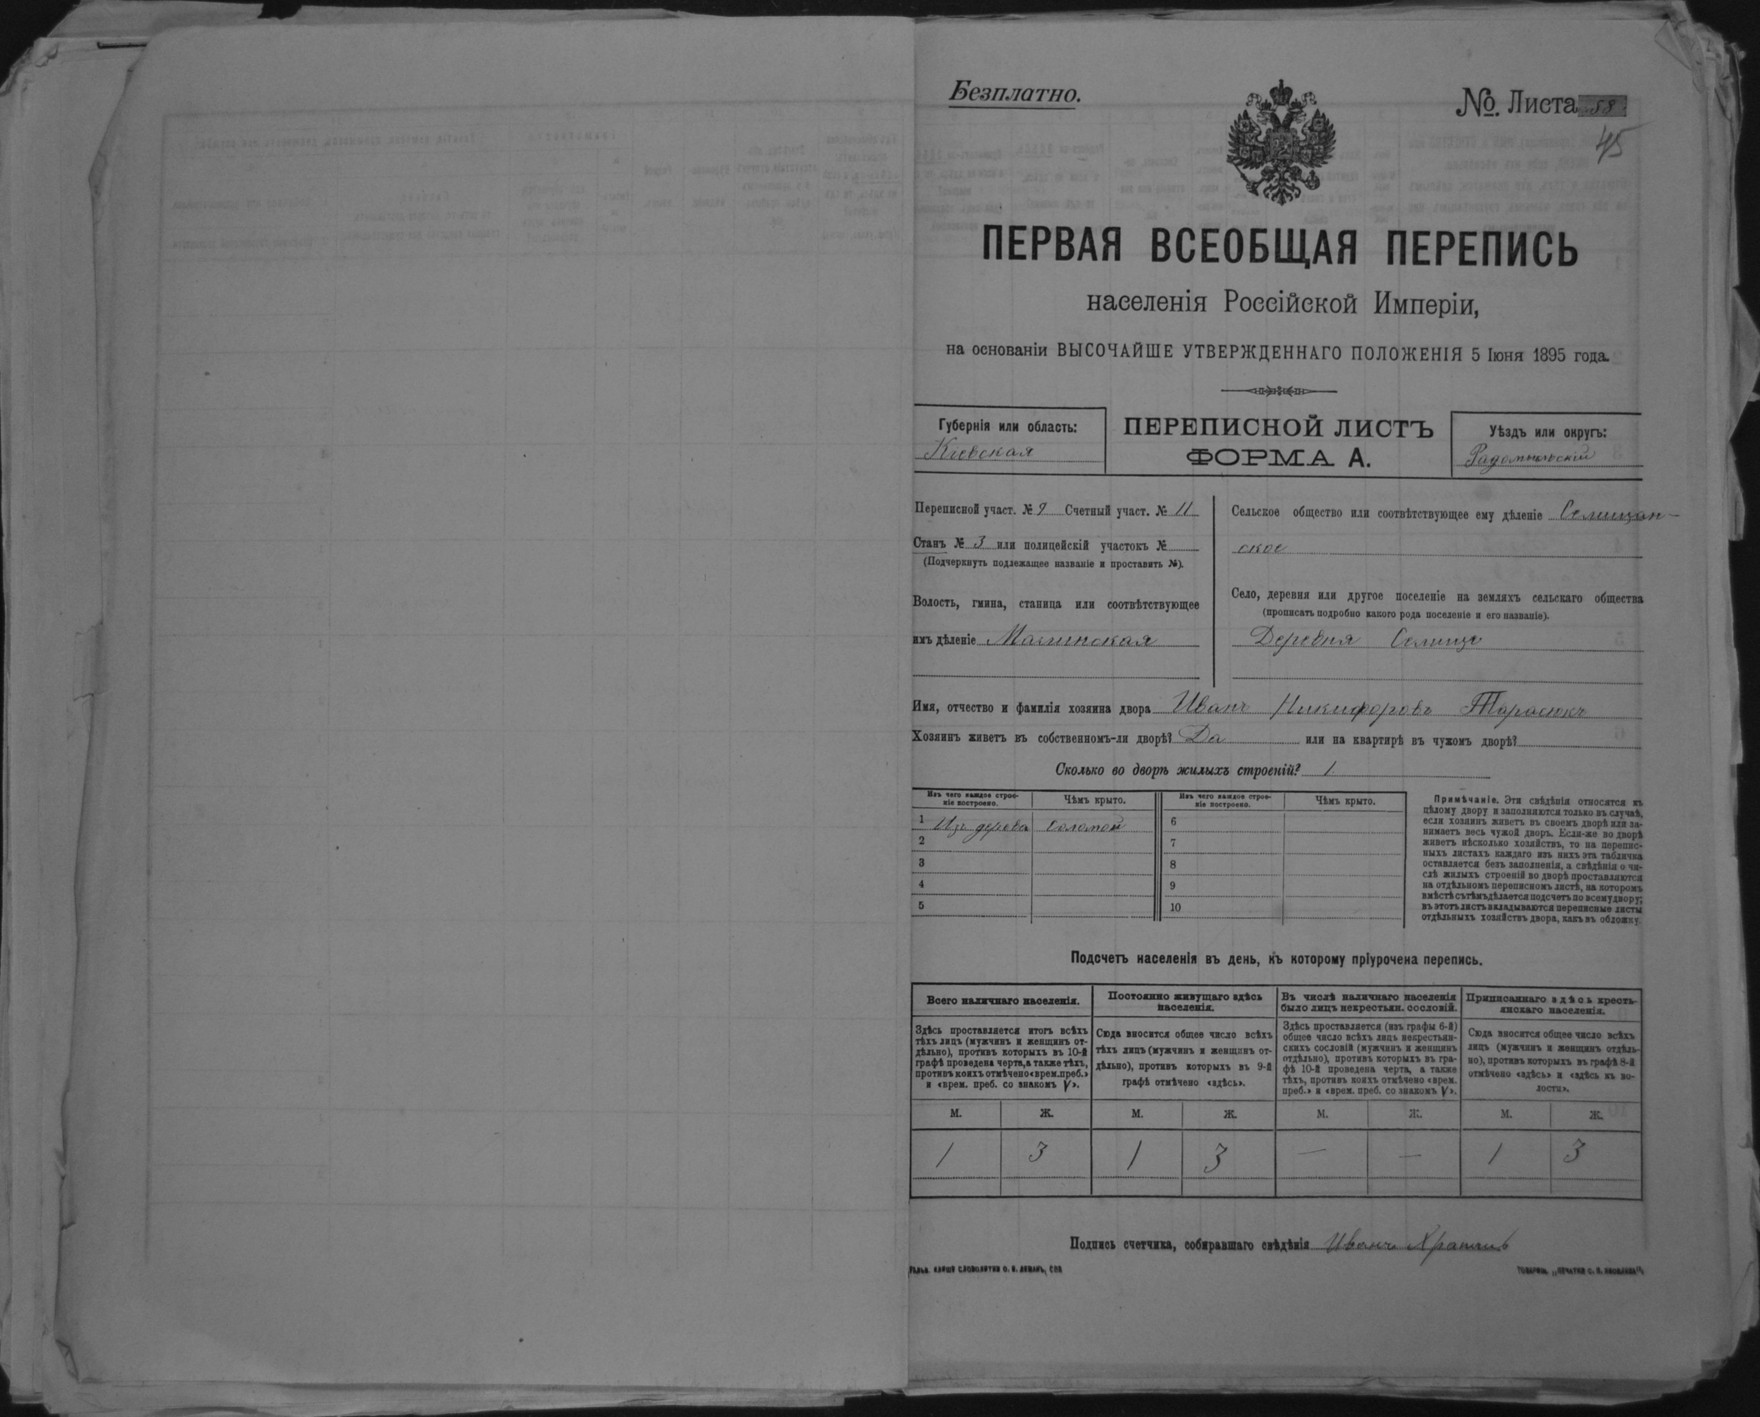 Безплатно.
№. Листа 58
45
ПЕРВАЯ ВСЕОБЩАЯ ПЕРЕПИСЬ
населенія Россійской Имперіи,
на основаніи ВЫСОЧАЙШЕ УТВЕРЖДЕННАГО ПОЛОЖЕНІЯ 5 Іюня 1895 года.
Губернія или область:
Кіевская
ПЕРЕПИСНОЙ ЛИСТЪ
ФОРМА А.
Уѣздъ или округъ:
Радомысльскій
Переписной участ. № 9 Счетный участ. № 11
Станъ № 3 или полицейскій участокъ №
(Подчеркнуть подлежащее названіе и проставить №).
Волость, гмина, станица или соотвѣтствующее
имъ дѣленіе Малинская
Сельское общество или соотвѣтствующее ему дѣленіе Селищан-
ское
Село, деревня или другое поселеніе на земляхъ сельскаго общества
(прописать подробно какого рода поселеніе и его названіе).
Деревня Селище
Имя, отчество и фамилія хозяина двора Иванъ Никифоровъ Тарасюкъ
Хозяинъ живетъ въ собственномъ-ли дворѣ? Да или на квартирѣ въ чужомъ дворѣ?
Сколько во дворѣ жилыхъ строеній? 1.
Изъ чего каждое строе-
ніе построено.
Чѣмъ крыто.
Изъ чего каждое строе-
ніе построено.
Чѣмъ крыто.
1 Изъ дерева соломой
2
3
4
5
6
7
8
9
10
Примѣчаніе. Эти свѣдѣнія относятся къ
цѣлому двору и заполняются только въ случаѣ,
если хозяинъ живетъ въ своемъ дворѣ или за-
нимаетъ весь чужой дворъ. Если-же во дворѣ
живетъ нѣсколько хозяйствъ, то на перепис-
ныхъ листахъ каждаго изъ нихъ эта табличка
оставляется безъ заполненія, а свѣдѣнія о чи-
слѣ жилыхъ строеній во дворѣ проставляются
на отдѣльномъ переписномъ листѣ, на которомъ
вмѣстѣ съ тѣмъ дѣлается подсчетъ по всему двору;
въ этотъ листъ вкладываются переписные листы
отдѣльныхъ хозяйствъ двора, какъ въ обложку.
Подсчетъ населенія въ день, къ которому пріурочена перепись.
Всего наличнаго населенія.
Здѣсь проставляется итогъ всѣхъ
тѣхъ лицъ (мужчинъ и женщинъ от-
дѣльно), противъ которыхъ въ 10-й
графѣ проведена черта, а также тѣхъ,
противъ коихъ отмѣчено «врем. преб.»
и «врем. преб. со знакомъ V».
Постоянно живущаго здѣсь
населенія.
Сюда вносится общее число всѣхъ
тѣхъ лицъ (мужчинъ и женщинъ от-
дѣльно), противъ которыхъ въ 9-й
графѣ отмѣчено «здѣсь».
Въ числѣ наличнаго населенія
было лицъ некрестьян. сословій.
Здѣсь проставляется (изъ графы 6-й)
общее число всѣхъ лицъ некрестьян-
скихъ сословій (мужчинъ и женщинъ
отдѣльно), противъ которыхъ въ гра-
фѣ 10-й проведена черта, а также
тѣхъ, противъ коихъ отмѣчено «врем.
преб.» и «врем. преб. со знакомъ V».
Приписаннаго здѣсь кресть-
янскаго населенія.
Сюда вносится общее число всѣхъ
лицъ (мужчинъ и женщинъ отдѣль-
но), противъ которыхъ въ графѣ 8-й
отмѣчено «здѣсь» и «здѣсь къ во-
лости».
М. Ж. М. Ж. М. Ж. М. Ж.
1 3 1 3 — — 1 3
Подпись счетчика, собиравшаго свѣдѣнія Иванъ